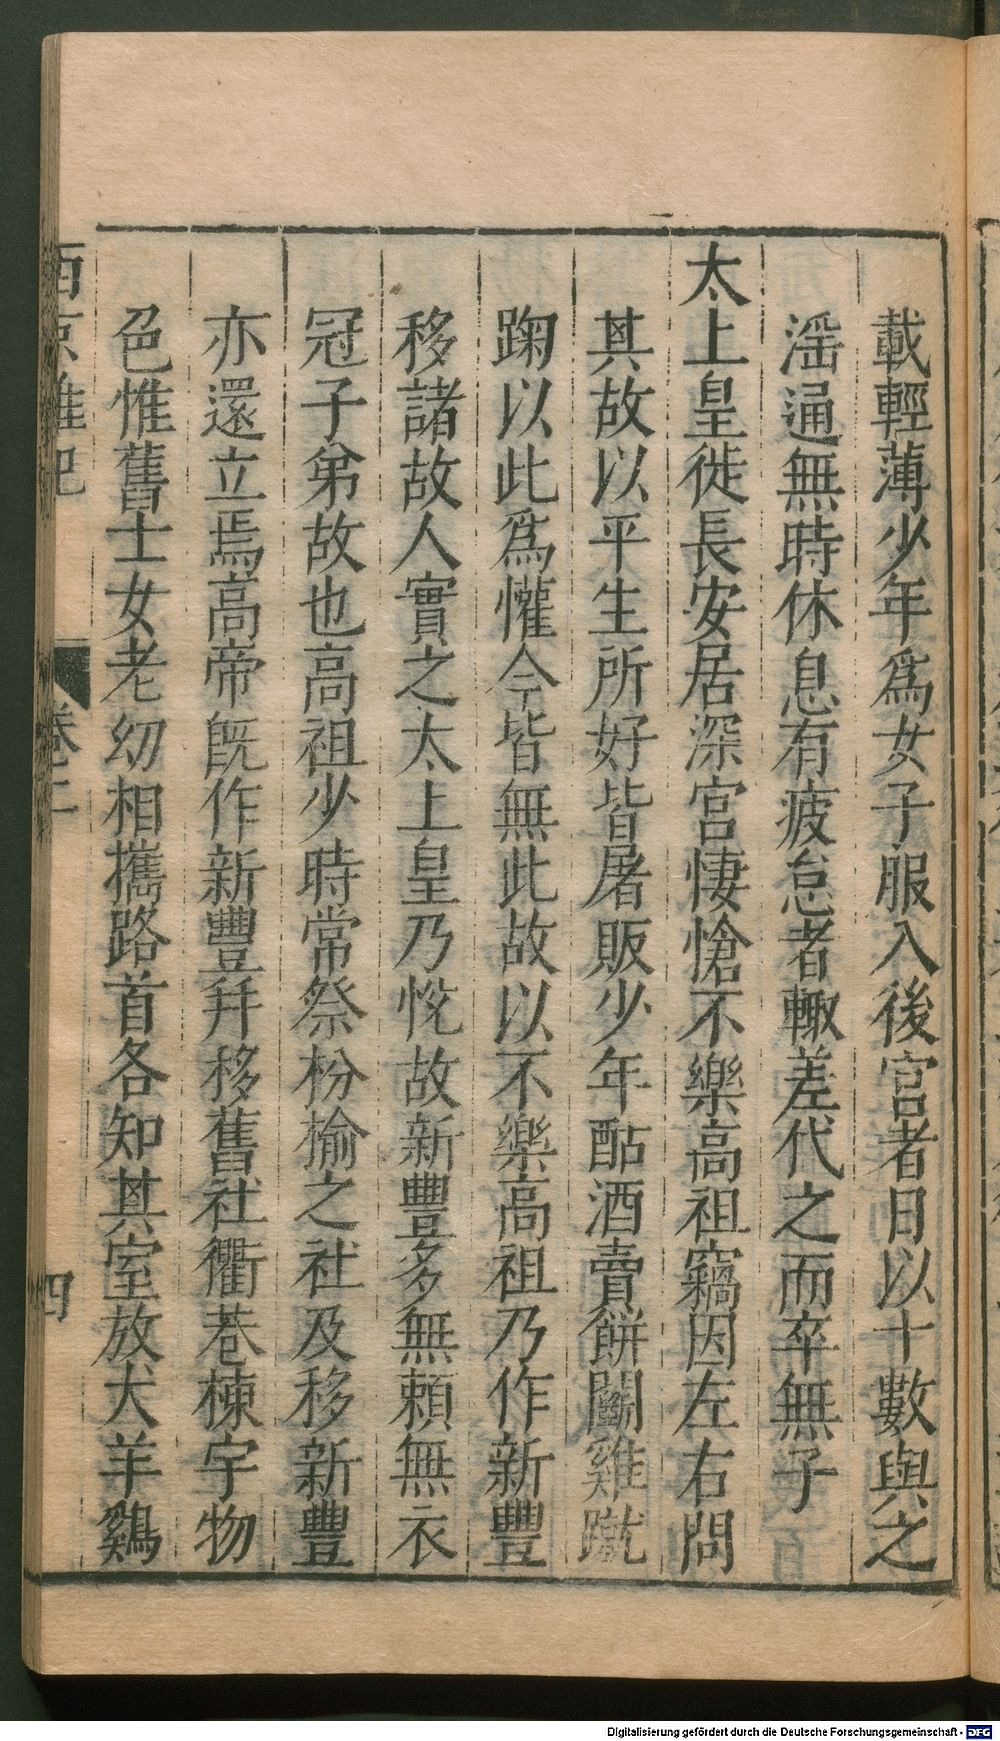 載輕薄少年爲女子服入後宮者日以十數與之
滛通無時休息有疲怠者輙差代之而卒無子
太上皇徙長安居深宮悽愴不樂高祖竊因左右問
其故以平生所好皆屠販少年酤酒賣餅鬬雞蹴
踘以此爲懽今皆無此故以不樂高祖乃作新豐
移諸故人實之太上皇乃恱故新豐多無賴無衣
冠子弟故也高祖少時常祭枌榆之社及移新豐
亦還立焉高帝旣作新豐幷移舊社衢巷棟宇物
色惟舊士女老幼相攜路首各知其室放犬羊鷄
西京雜記 卷二 四
Digitalisierung gefördert durch die Deutsche Forschungsgemeinschaft - DFG